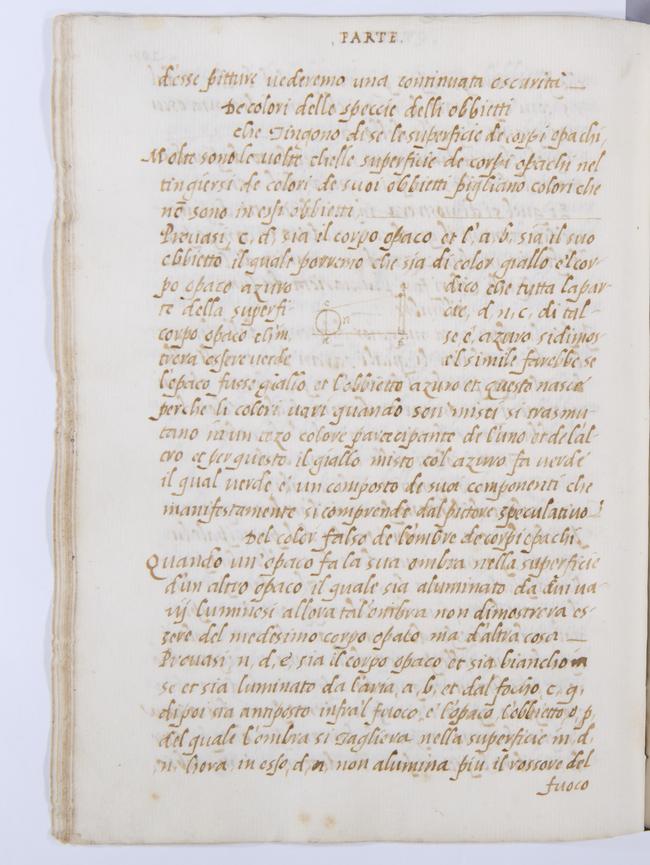 PARTE.
d'esse pitture uederemo una continuata oscurità
De colori delle speccie delli obbietti
che Tingono di se le superficie de corpi opachi,
Molte sono le uolte chelle superficie de corpi opachi nel
tingiersi de colori de suoi obbietti pigliano colori che
nō sono in essi obbietti
Prouasi, c, d, sia il corpo opaco et l', a, b, sia il suo
obbietto il quale porremo che sia di color giallo e'l cor-
po opaco azuro dico che tutta la par-
te della superfi- cie, d, n, c, di tal-
corpo opaco ch'in se è azuro si dimos-
trera essere uerde e'l simile farebbe se
l'opaco fusse giallo et l'obbietto azuro et questo nasce
perche li colori uari quando son misti si trasmu-
tano in un terzo colore partecipante de l'uno et de l'al-
tro et per questo il giallo misto col azuro fa uerde
il qual uerde è un composto de suoi componenti che
manifestamente si comprende dal pittore speculatiuo
Del color falso de l'ombre de corpi opachi
Quando un'opaco fa la sua ombra nella superficie
d'un altro opaco il quale sia aluminato da dui ua-
rij luminosi allora tal'ombra non dimostrera es-
sere del medesimo corpo opaco ma d'altra cosa
Prouasi, n, d, e, sia il corpo opaco et sia biancho in
se et sia luminato da l'aria, a, b, et dal focho, c, g,
di poi sia antiposto infra'l fuoco e l'opaco l'obbietto, o, p,
del quale l'ombra si Tagliera nella superficie in, d,
n, hora in esso, d, n, non alumina piu il rossore del
fuoco